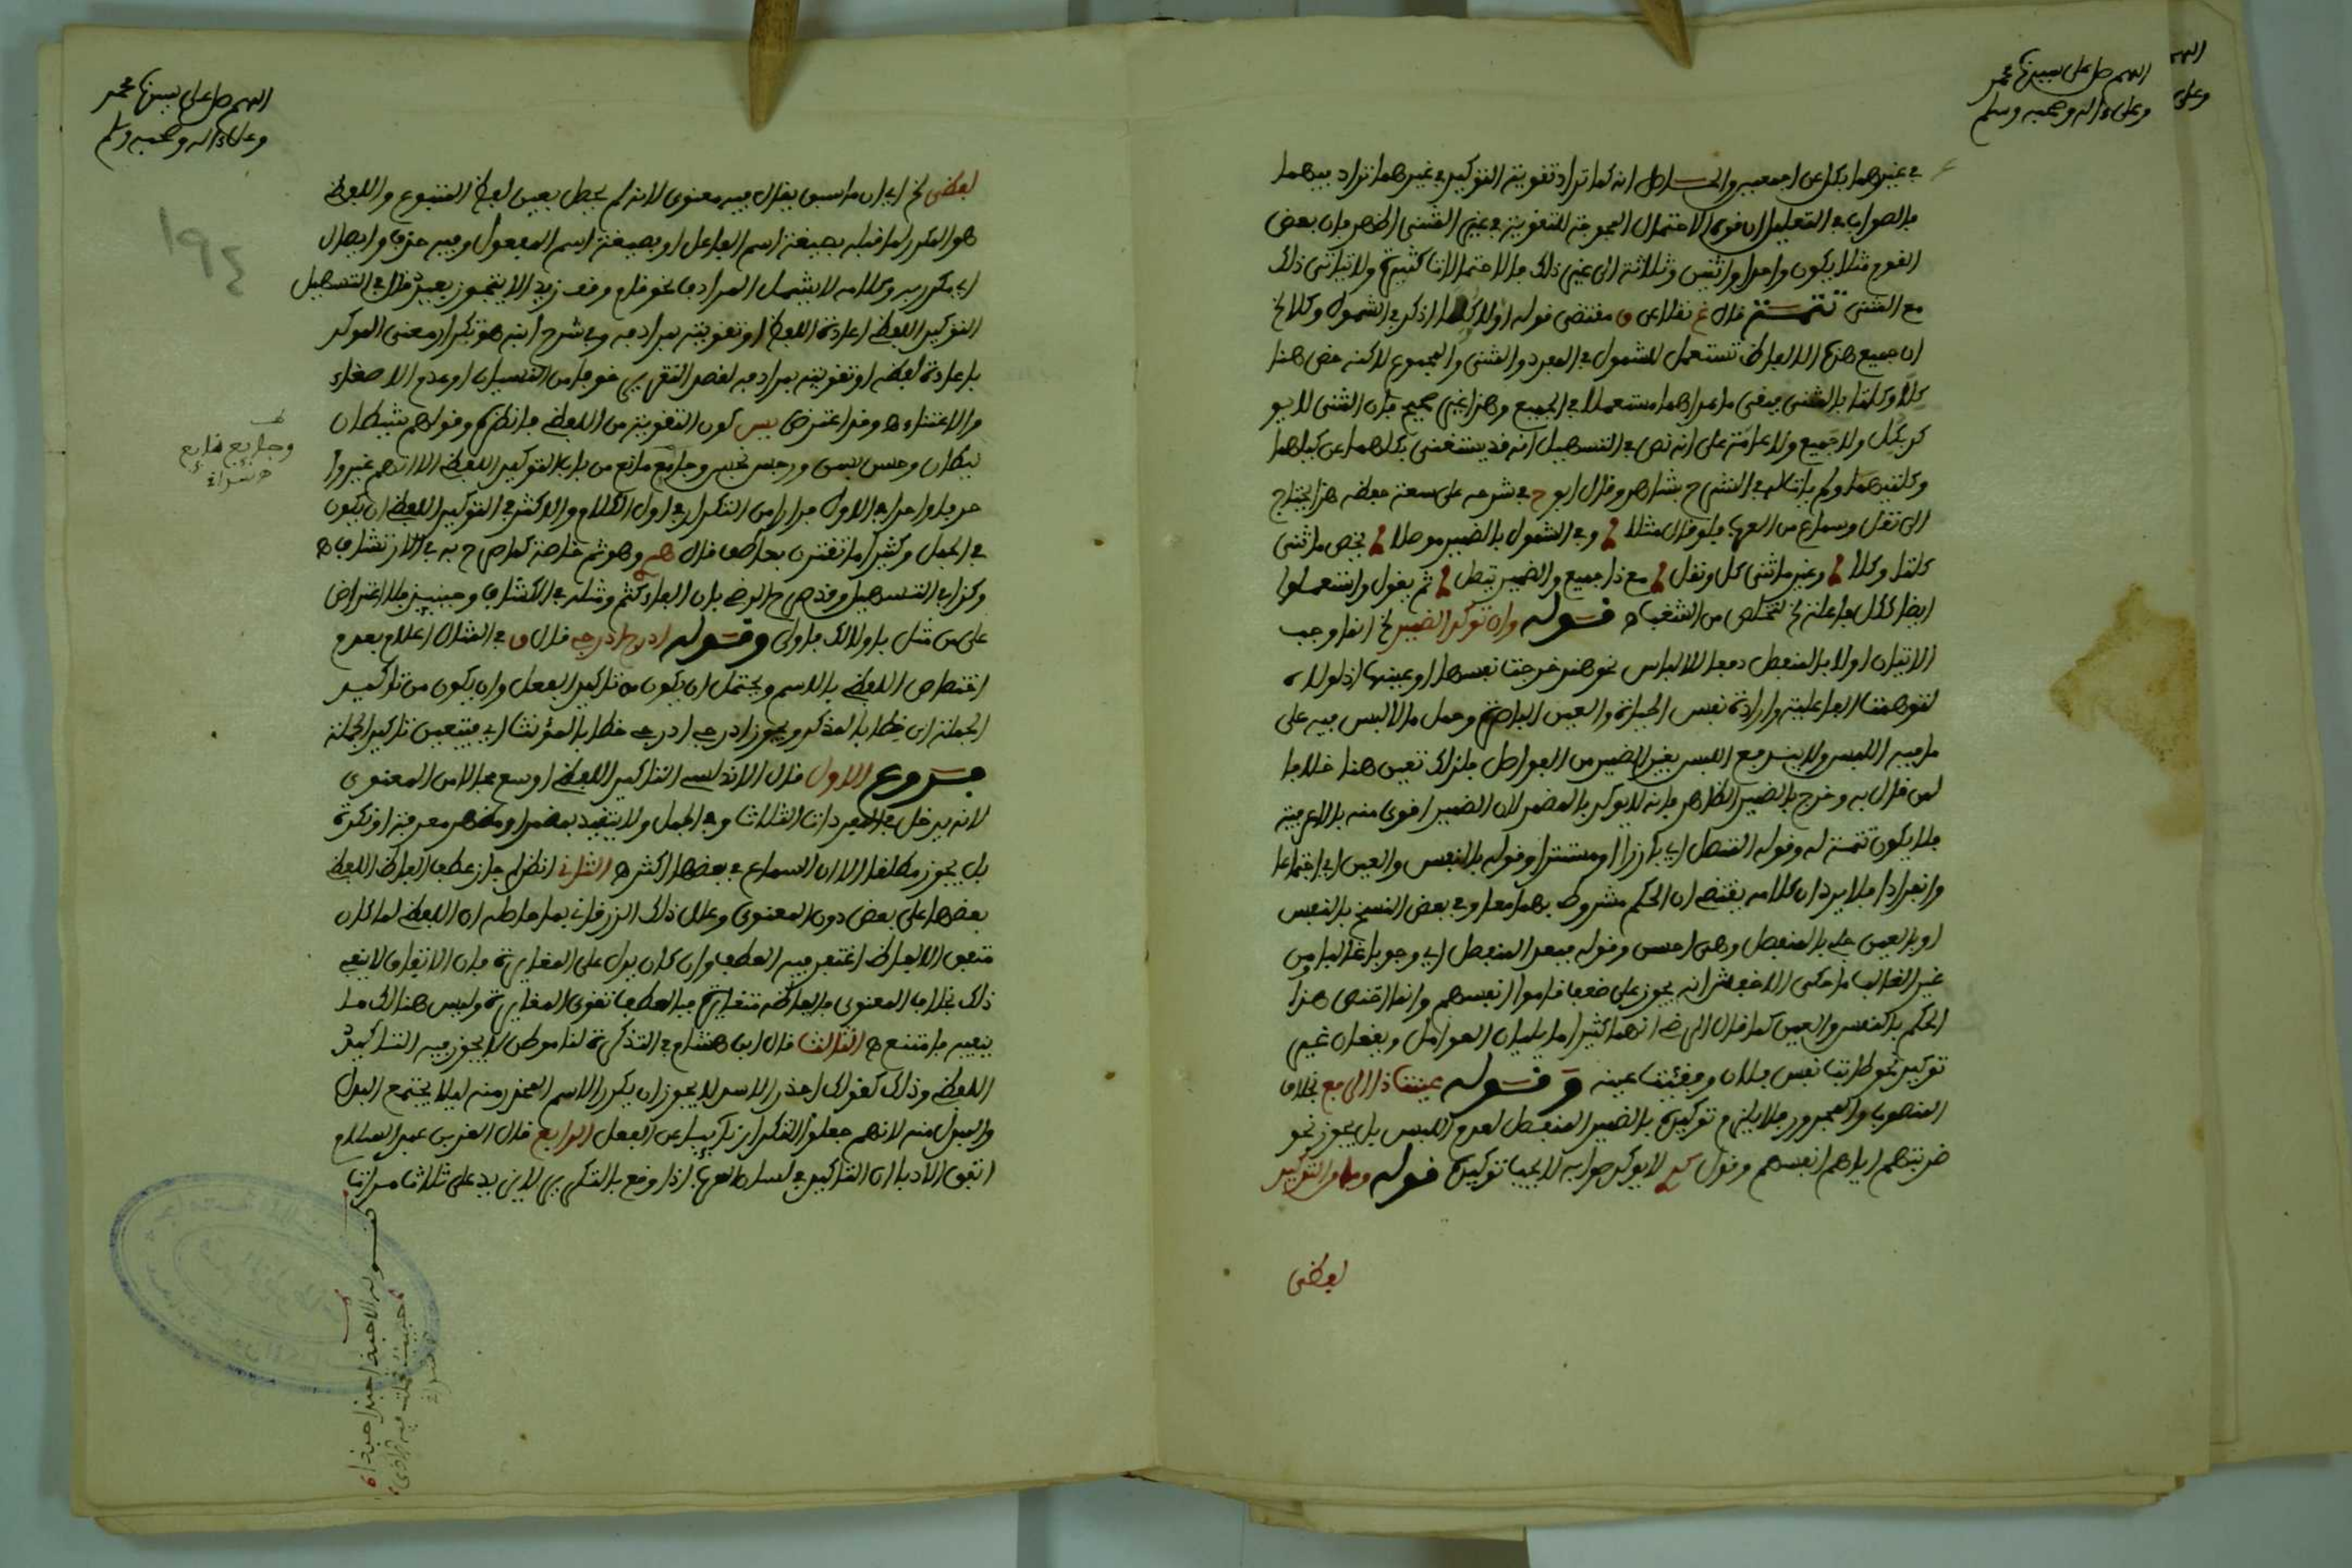 اللهم صل على سيدنا محمد
وعلى ءاله وصحبه وسلم
في غيرهما بكل عن اجمعين والحاصل انه كما تراد تقوية التوكيد في غيرهما تراد بيهما
بالصواب في التعليل ان قوة الاحتمال المحوجة للتقوية في غير المثنى اظهر فان بعض
القوم مثلا يكون واحدا واثنين وثلاثة الى غير ذلك فالاحتمالات كثيرة ولا يتاتى ذلك
مع المثنى تتمة قال غ نقلا عن ق مقتضى قوله اولا وكلا اذكر في الشمول وكلا لخ
ان جميع هذه الالفاظ تستعمل للشمول في المفرد والمثنى والمجموع لاكنه خص هنا
كلا وكلتا بالمثنى فبقي ما عداهما مستعملا في الجميع وهذا غير صحيح فان المثنى لا يو
كد بكل ولا جميع ولا عامة على انه نص في التسهيل انه قد يستغنى بكلهما عن كليهما
وكلتيهما ولم يات في الشرح بشاهد وقال ابو ح في شرحه على سعة حفظه هذا يحتاج
الى نقل وسماع من العرب فلو قال مثلا وفي الشمول بالضمير موصلا يخص ما ثني
كلتا وكلا وغير ما ثني كل ونقل مع ذا جميع والضمير يتصل ثم يقول واستعملوا
ايضا ككل فاعلة لخ لتخلص من الشغب ه قوله وان توكد الضمير لخ انما وجب
الاتيان اولا بالمنفصل دفعا للالباس نحو هند خرجت نفسها او عينها اذ لولاه
لتوهمت الفاعلية وارادة نفس الحياة والعين الباصرة وحمل ما لا لبس فيه على
ما فيه اللبس ولا ينـ مع اللبس بغير الضمير من الفواصل فلذلك تعين هنا خلافا
لمن قال به وخرج بالضمير الظاهر فانه لا يوكد بالمضمر لان الضمير اقوى منه بالاعرفية
فلا يكون تتمة له وقوله المتصل اي بارزا او مستترا وقوله بالنفس والعين اي اجتماعا
وانفرادا فلا يرد ان كلامه يقتضي ان الحكم مشروط بهما معا وفي بعض النسخ بالنفس
او بالعين فـ بالمنفصل وهي احسن وقوله فبعد المنفصل اي وجوبا غالبا ومن
غير الغالب ما حكى الاخفش انه يجوز على ضعف قاموا انفسهم وانما اختص هذا
الحكم بالنفس والعين كما قال الرضي انهما كثيرا ما يليان العوامل ويقعان غير
توكيد نحو طابت نفس فلان وفقئت عينه وقوله عنيت ذا الرفع بخلاف
المنصوب والمجرور فلا يلزم توكيده بالضمير المنفصل لعدم اللبس بل يجوز نحو
ضربتهم اياهم انفسهم وقول لا يوكد صوابه لا يجب توكيده قوله وما من التوكيد
لفظي
اللهم صل على سيدنا محمد
وعلى ءاله وصحبه وسلم
١٩٤
لفظي لخ اي ان ما سبق يقال فيه معنوي لانه لم يحصل بعين لفظ المتبوع واللفظي
هو المكرر لما قبله بصيغة اسم الفاعل او بصيغة اسم المفعول وفيه حذف وايصال
اي مكرر به وكلامه لا يشمل المرادف نحو قام وقف زيد الا بتجوز بعيد قال في التسهيل
التوكيد اللفظي اعادة اللفظ او تقويته بمرادفه وفي شرح ابنه هو تكرار معنى الموكد
باعادة لفظه او تقويته بمرادفه لقصد التقرير خوفا من النسيان او عدم الاصغاء
والاعتناء ه وقد اعترض يس كون التقوية من اللفظي فانظره وقولهم شيطان
ليطان وحسن بسن ورجس نجس وجامع مانع من باب التوكيد اللفظي الا انهم غيروا
حرفا واحدا في الاول فرارا من التكرار في اول الكلام والاكثر في التوكيد اللفظي ان يكون
في الجمل وكثيرا ما تقترن بعاطف قال وهو ثم خاصة كما صرح به في الارتشاف ه
وكذا في التسهيل وقد صرح الرضي بان الفاء كثم ومثله في الكشاف وحينئذ فلا اعتراض
على من مثل باولى لك فاولى وقوله ادرج ادرج قال ق في المثال اعلام بعدم
اختصاص اللفظي بالاسم ويحتمل ان يكون من تاكيد الفعل وان يكون من تاكيد
الجملة ان خطابا لمذكر ويجوز ادرجي ادرجي خطابا لمؤنث اي فيتعين تاكيد الجملة
فروع الاول قال الاندلسي التاكيد اللفظي اوسع مجالا من المعنوي
لانه يدخل في المفردات الثلاث وفي الجمل ولا يتقيد بمضمر او مظهر معرفة او نكرة
بل يجوز مطلقا الا ان السماع في بعضها اكثر ه الثاني انظر لم جاز عطف الفاظ اللفظي
بعضها على بعض دون المعنوي وعلل ذلك الزرقاني بما حاصله ان اللفظي لما كان
متفق الالفاظ اغتفر فيه العطف وان كان يدل على المغايرة فان الاتفاق لا ينفي
ذلك بخلاف المعنوي فالفاظه متغايرة فبالعطف تقوى المغايرة وليس هنالك ما
ينفيه فامتنع ه الثالث قال ابن هشام في التذكرة لنا موطن لا يجوز فيه التاكيد
اللفظي وذلك كقولك احذر الاسد لا يجوز ان يكرر الاسم المحذر منه ليلا يجتمع البدل
والمبدل منه لانهم جعلوا التكرار نائبا عن الفعل الرابع قال العز بن عبد السلام
اتفق الادباء ان التاكيد في لسان العرب اذا وقع بالتكرير لا يزيد على ثلاث مرات
وجايع نايع